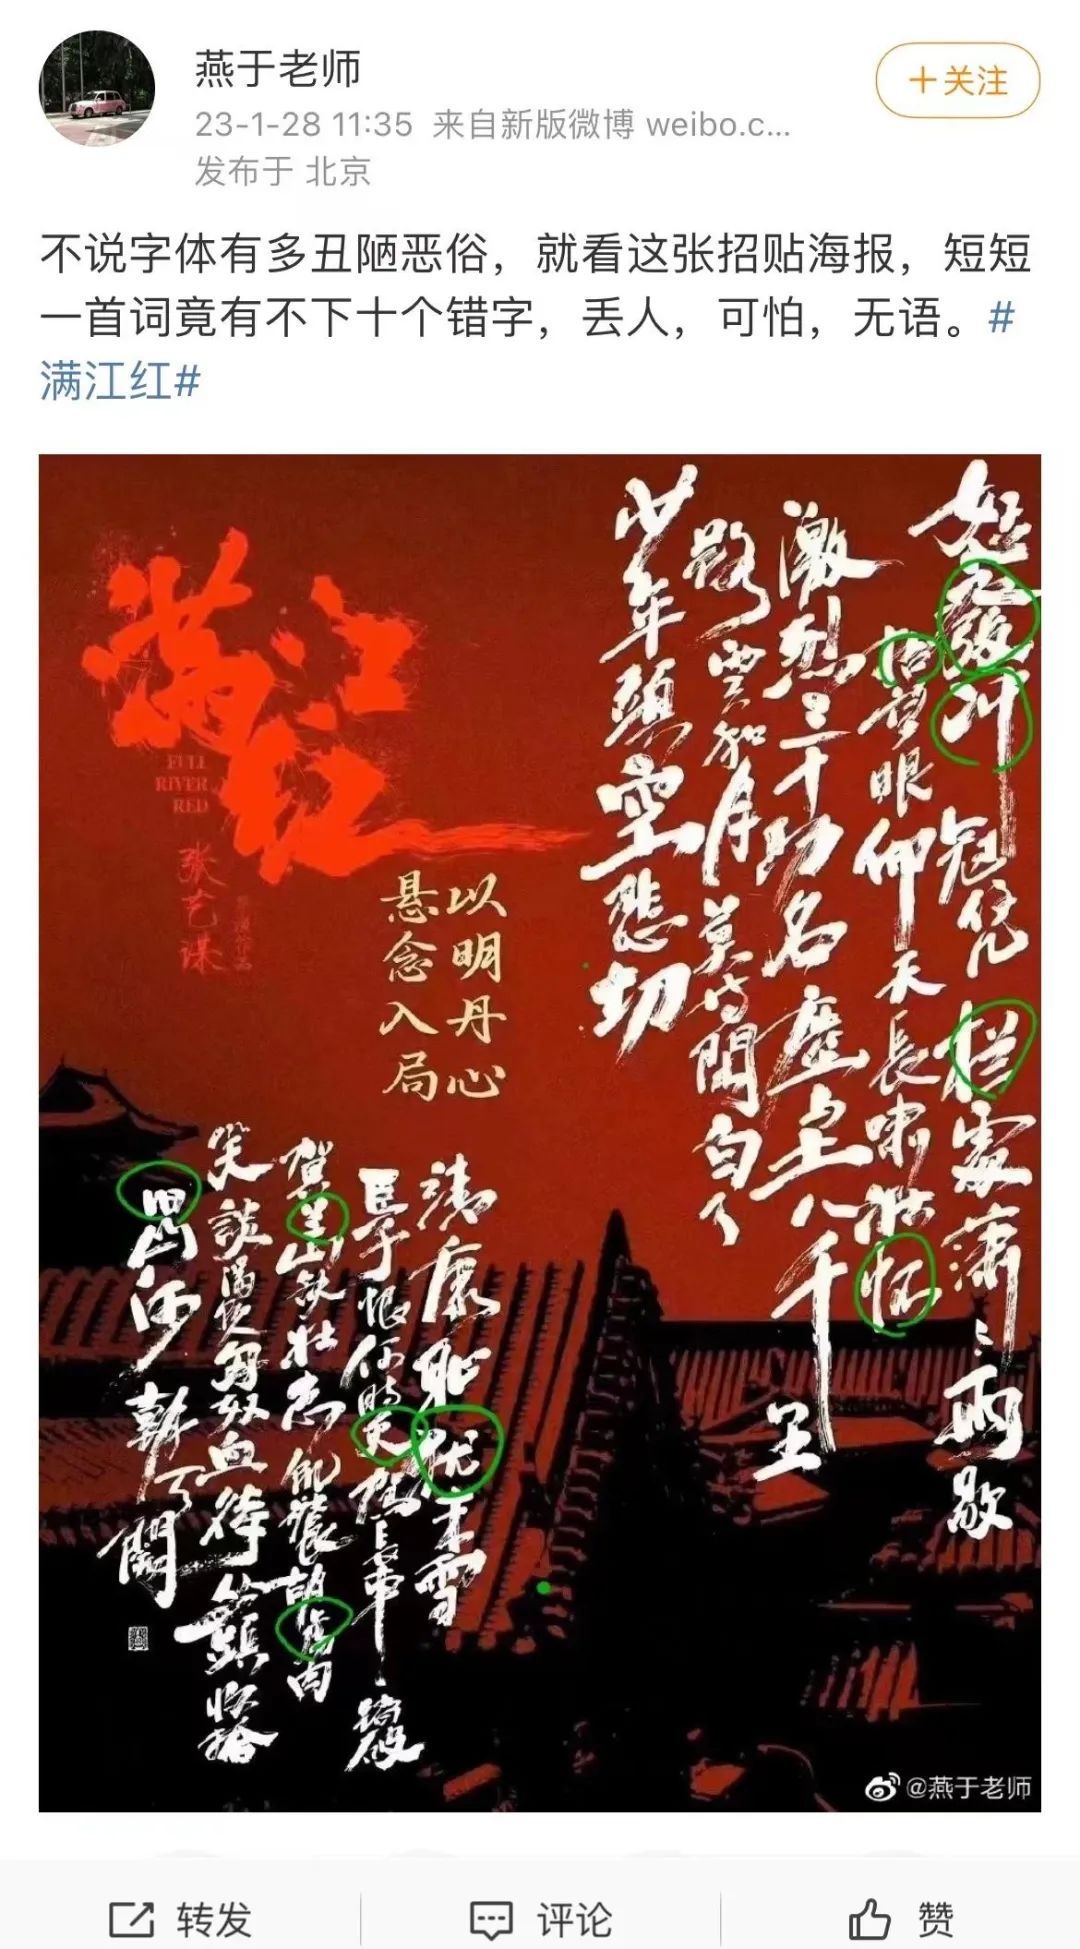 燕于老师
23-1-28 11:35 来自新版微博 weibo.c...
发布于 北京
+关注
不说字体有多丑陋恶俗，就看这张招贴海报，短短
一首词竟有不下十个错字，丢人，可怕，无语。#
满江红#
满江红
FULL
RIVER
RED
张艺谋
以明丹心
悬念入局
冠凭栏處潇
雨歇
眼仰天長啸壮怀
激烈三十功名塵土八千里
路雲和月莫
閒白了
少年頭空悲切
靖康恥犹未雪
臣子恨何時
贺兰山缺壮志飢餐胡虏肉
笑談渴饮匈奴血待
頭收拾
山河
闕
@燕于老师
转发
评论
赞